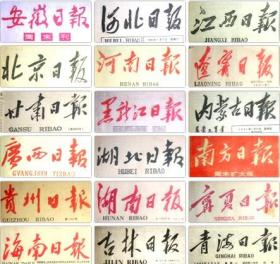 安徽日报
周末刊
河北日报
HEBEI RIBAO
江西日报
JIANGXI RIBAO
北京日报
河南日报
HENAN RIBAO
辽宁日报
LIAONING RIBAO
甘肃日报
GANSU RIBAO
黑龙江日报
内蒙古日报
广西日报
GVANGJSIH YIZBAU
湖北日报
HUBEI RIBAO
南方日报
周末扩大版
贵州日报
GUIZHOU RIBAO
湖南日报
HUNAN RIBAO
宁夏日报
NINGXIA RIBAO
海南日报
HAINAN RIBAO
吉林日报
JILIN RIBAO
青海日报
QINGHAI RIBAO